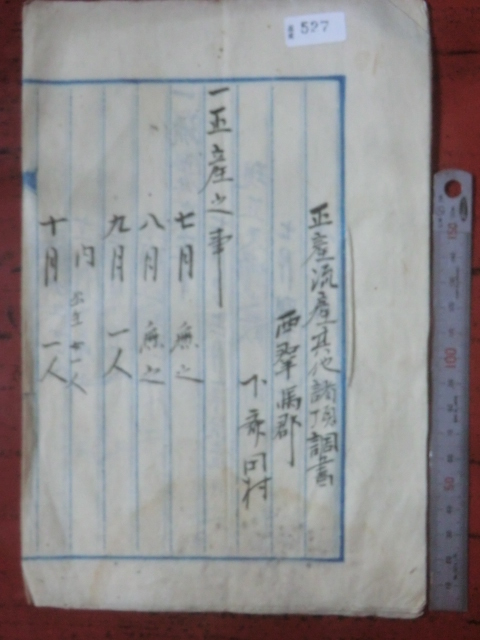 527
正産流産其他諸項調書
西羣馬郡
下 田村
一正産之事
七月 無之
八月 無之
九月 一人
内 女一人
十月 一人